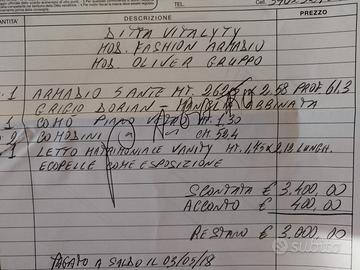 TEL.
Cell.
QUANTITA'
DESCRIZIONE
PREZZO
DITTA VITALYTY
MOD. FASHION ARMADIO
MOD. OLIVER GRUPPO
1 ARMADIO 5 ANTE MT. 262 x 2.58 PROF 61.3
GRIGIO DORIAN - MANIGLIA ABBINATA
1 COMO PIANO VETRO MT. 1.30
2 COMODINI CM. 58.4
1 LETTO MATRIMONIALE VANITY MT. 1,75 x 2,18 LUNGH.
ECOPELLE COME ESPOSIZIONE
SCONTATA € 3.400,00
ACCONTO € 400,00
RESTANO € 3.000,00
PAGATO A SALDO IL 03/05/18
subito